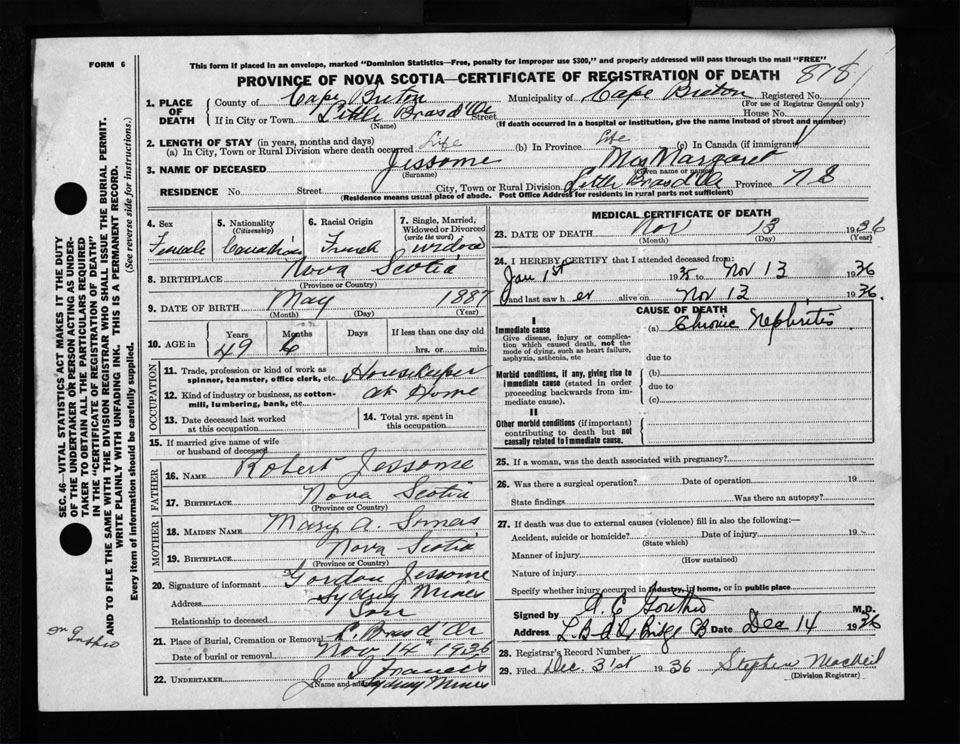 FORM 6
This form if placed in an envelope, marked "Dominion Statistics—Free, penalty for improper use $300," and properly addressed will pass through the mail "FREE"
PROVINCE OF NOVA SCOTIA—CERTIFICATE OF REGISTRATION OF DEATH
8181
1. PLACE OF DEATH
County of Cape Breton Municipality of Cape Breton Registered No.
(For use of Registrar General only)
If in City or Town Little Bras d'Or Street House No.
(Name) (If death occurred in a hospital or institution, give the name instead of street and number)
2. LENGTH OF STAY (in years, months and days)
(a) In City, Town or Rural Division where death occurred Life (b) In Province Life (c) In Canada (if immigrant)
3. NAME OF DECEASED Jessome Mrs Margaret
(Surname) (Given name or names)
RESIDENCE No. Street City, Town or Rural Division Little Bras d'Or Province N S
(Residence means usual place of abode. Post Office Address for residents in rural parts not sufficient)
4. Sex
Female
5. Nationality
(Citizenship)
Canadian
6. Racial Origin
French
7. Single, Married, Widowed or Divorced
(write the word)
Widow
8. BIRTHPLACE Nova Scotia
(Province or Country)
9. DATE OF BIRTH May 1887
(Month) (Day) (Year)
10. AGE in
Years Months Days If less than one day old
49 6 hrs. or min.
OCCUPATION
11. Trade, profession or kind of work as spinner, teamster, office clerk, etc. Housekeeper
12. Kind of industry or business, as cotton-mill, lumbering, bank, etc. at Home
13. Date deceased last worked at this occupation
14. Total yrs. spent in this occupation
15. If married give name of wife or husband of deceased
FATHER
16. NAME Robert Jessome
17. BIRTHPLACE Nova Scotia
(Province or Country)
MOTHER
18. MAIDEN NAME Mary A.
19. BIRTHPLACE Nova Scotia
(Province or Country)
20. Signature of informant Gordon Jessome
Address Sydney Mines
Relationship to deceased Son
21. Place of Burial, Cremation or Removal L. Bras d'Or
Date of burial or removal Nov 14 1936
22. UNDERTAKER J J Francis
(Name and address) Sydney Mines
MEDICAL CERTIFICATE OF DEATH
23. DATE OF DEATH Nov 13 1936
(Month) (Day) (Year)
24. I HEREBY CERTIFY that I attended deceased from:
Jan 1st 1935 to Nov 13 1936
and last saw her alive on Nov 13 1936.
CAUSE OF DEATH
I
Immediate cause
Give disease, injury or complication which caused death, not the mode of dying, such as heart failure, asphyxia, asthenia, etc
(a) Chronic Nephritis
due to
Morbid conditions, if any, giving rise to immediate cause (stated in order proceeding backwards from immediate cause).
(b)
due to
(c)
II
Other morbid conditions (if important) contributing to death but not causally related to immediate cause.
25. If a woman, was the death associated with pregnancy?
26. Was there a surgical operation? Date of operation 19
State findings Was there an autopsy?
27. If death was due to external causes (violence) fill in also the following:—
Accident, suicide or homicide? Date of injury 19
(State which)
Manner of injury
(How sustained)
Nature of injury
Specify whether injury occurred in industry, in home, or in public place
Signed by A. C. M.D.
Address Date Dec 14 1936
28. Registrar's Record Number
29. Filed Dec. 31st 1936 Stephen MacNeil
(Division Registrar)
SEC. 46—VITAL STATISTICS ACT MAKES IT THE DUTY
OF THE UNDERTAKER OR PERSON ACTING AS UNDER-
TAKER TO OBTAIN ALL THE PARTICULARS REQUIRED
IN THE "CERTIFICATE OF REGISTRATION OF DEATH"
AND TO FILE THE SAME WITH THE DIVISION REGISTRAR WHO SHALL ISSUE THE BURIAL PERMIT.
WRITE PLAINLY WITH UNFADING INK. THIS IS A PERMANENT RECORD.
Every item of information should be carefully supplied. (See reverse side for instructions.)